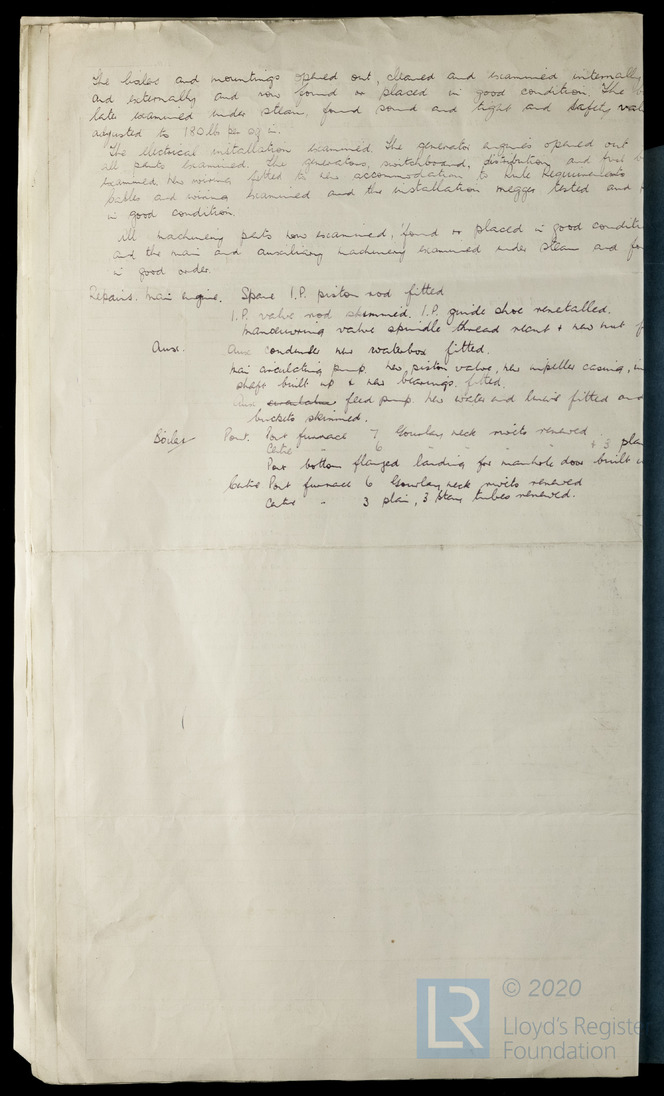 The boilers and mountings opened out, cleaned and examined internally
and externally and now found or placed in good condition. The
later examined under steam, found sound and tight and Safety val
adjusted to 180 lb per sq in.
The electrical installation examined. The generator engines opened out
all parts examined. The generators, switchboard, distribution and
examined. New wiring fitted to new accommodation to Rule Requirements
cables and wiring examined and the installation megger tested and
in good condition.
All machinery parts now examined, found or placed in good conditi
and the main and auxiliary machinery examined under steam and fo
in good order.
Repairs. Main engine. Spare I.P. piston rod fitted
I.P. valve rod skimmed. I.P. guide shoe remetalled.
Manoeuvring valve spindle thread recut & new nut f
Aux. Aux condenser new waterbox fitted.
Main circulating pump. New piston valve, new impeller casing, im
shaft built up & new bearings fitted.
Aux feed pump. New water end liners fitted and
buckets skimmed.
Boiler Port. Port furnace 7 Gourlay neck rivets renewed
Centre " 6 " " " " & 3 plai
Port bottom flanged landing for manhole door built u
Centre Port furnace 6 Gourlay neck rivets renewed
Centre " 3 plain, 3 stay tubes renewed.
LR
© 2020
Lloyd's Register
Foundation